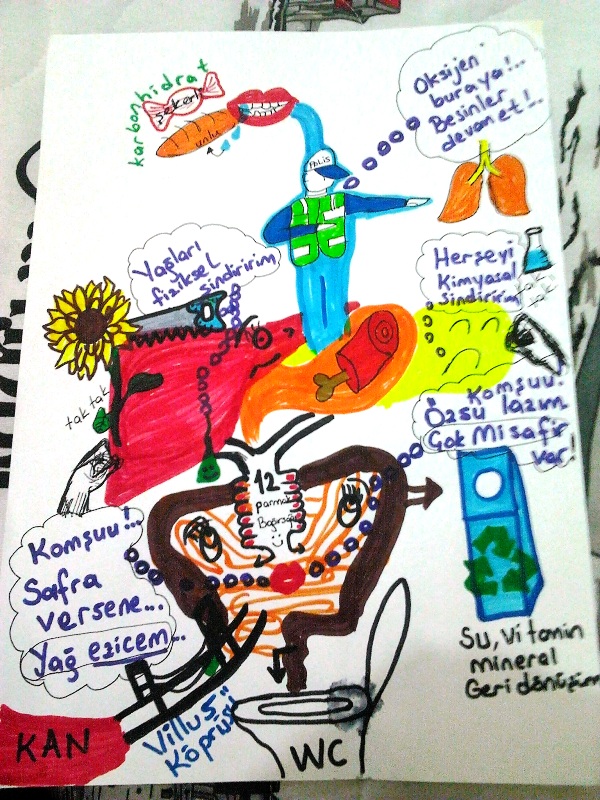 karbonhidrat
şekerli
unlu
Oksijen
buraya!..
Besinler
devam et!..
POLİS
Yağları
fiziksel
sindiririm
Herşeyi
Kimyasal
sindiririm
tak tak
Komşuu!
Özsu lazım
Çok misafir
var!
12
parmak
Bağırsağı
Komşuu!..
Safra
versene...
Yağ ezicem...
Su, Vitamin
mineral
Geri dönüşüm
KAN
Villus
Köprüsü
WC